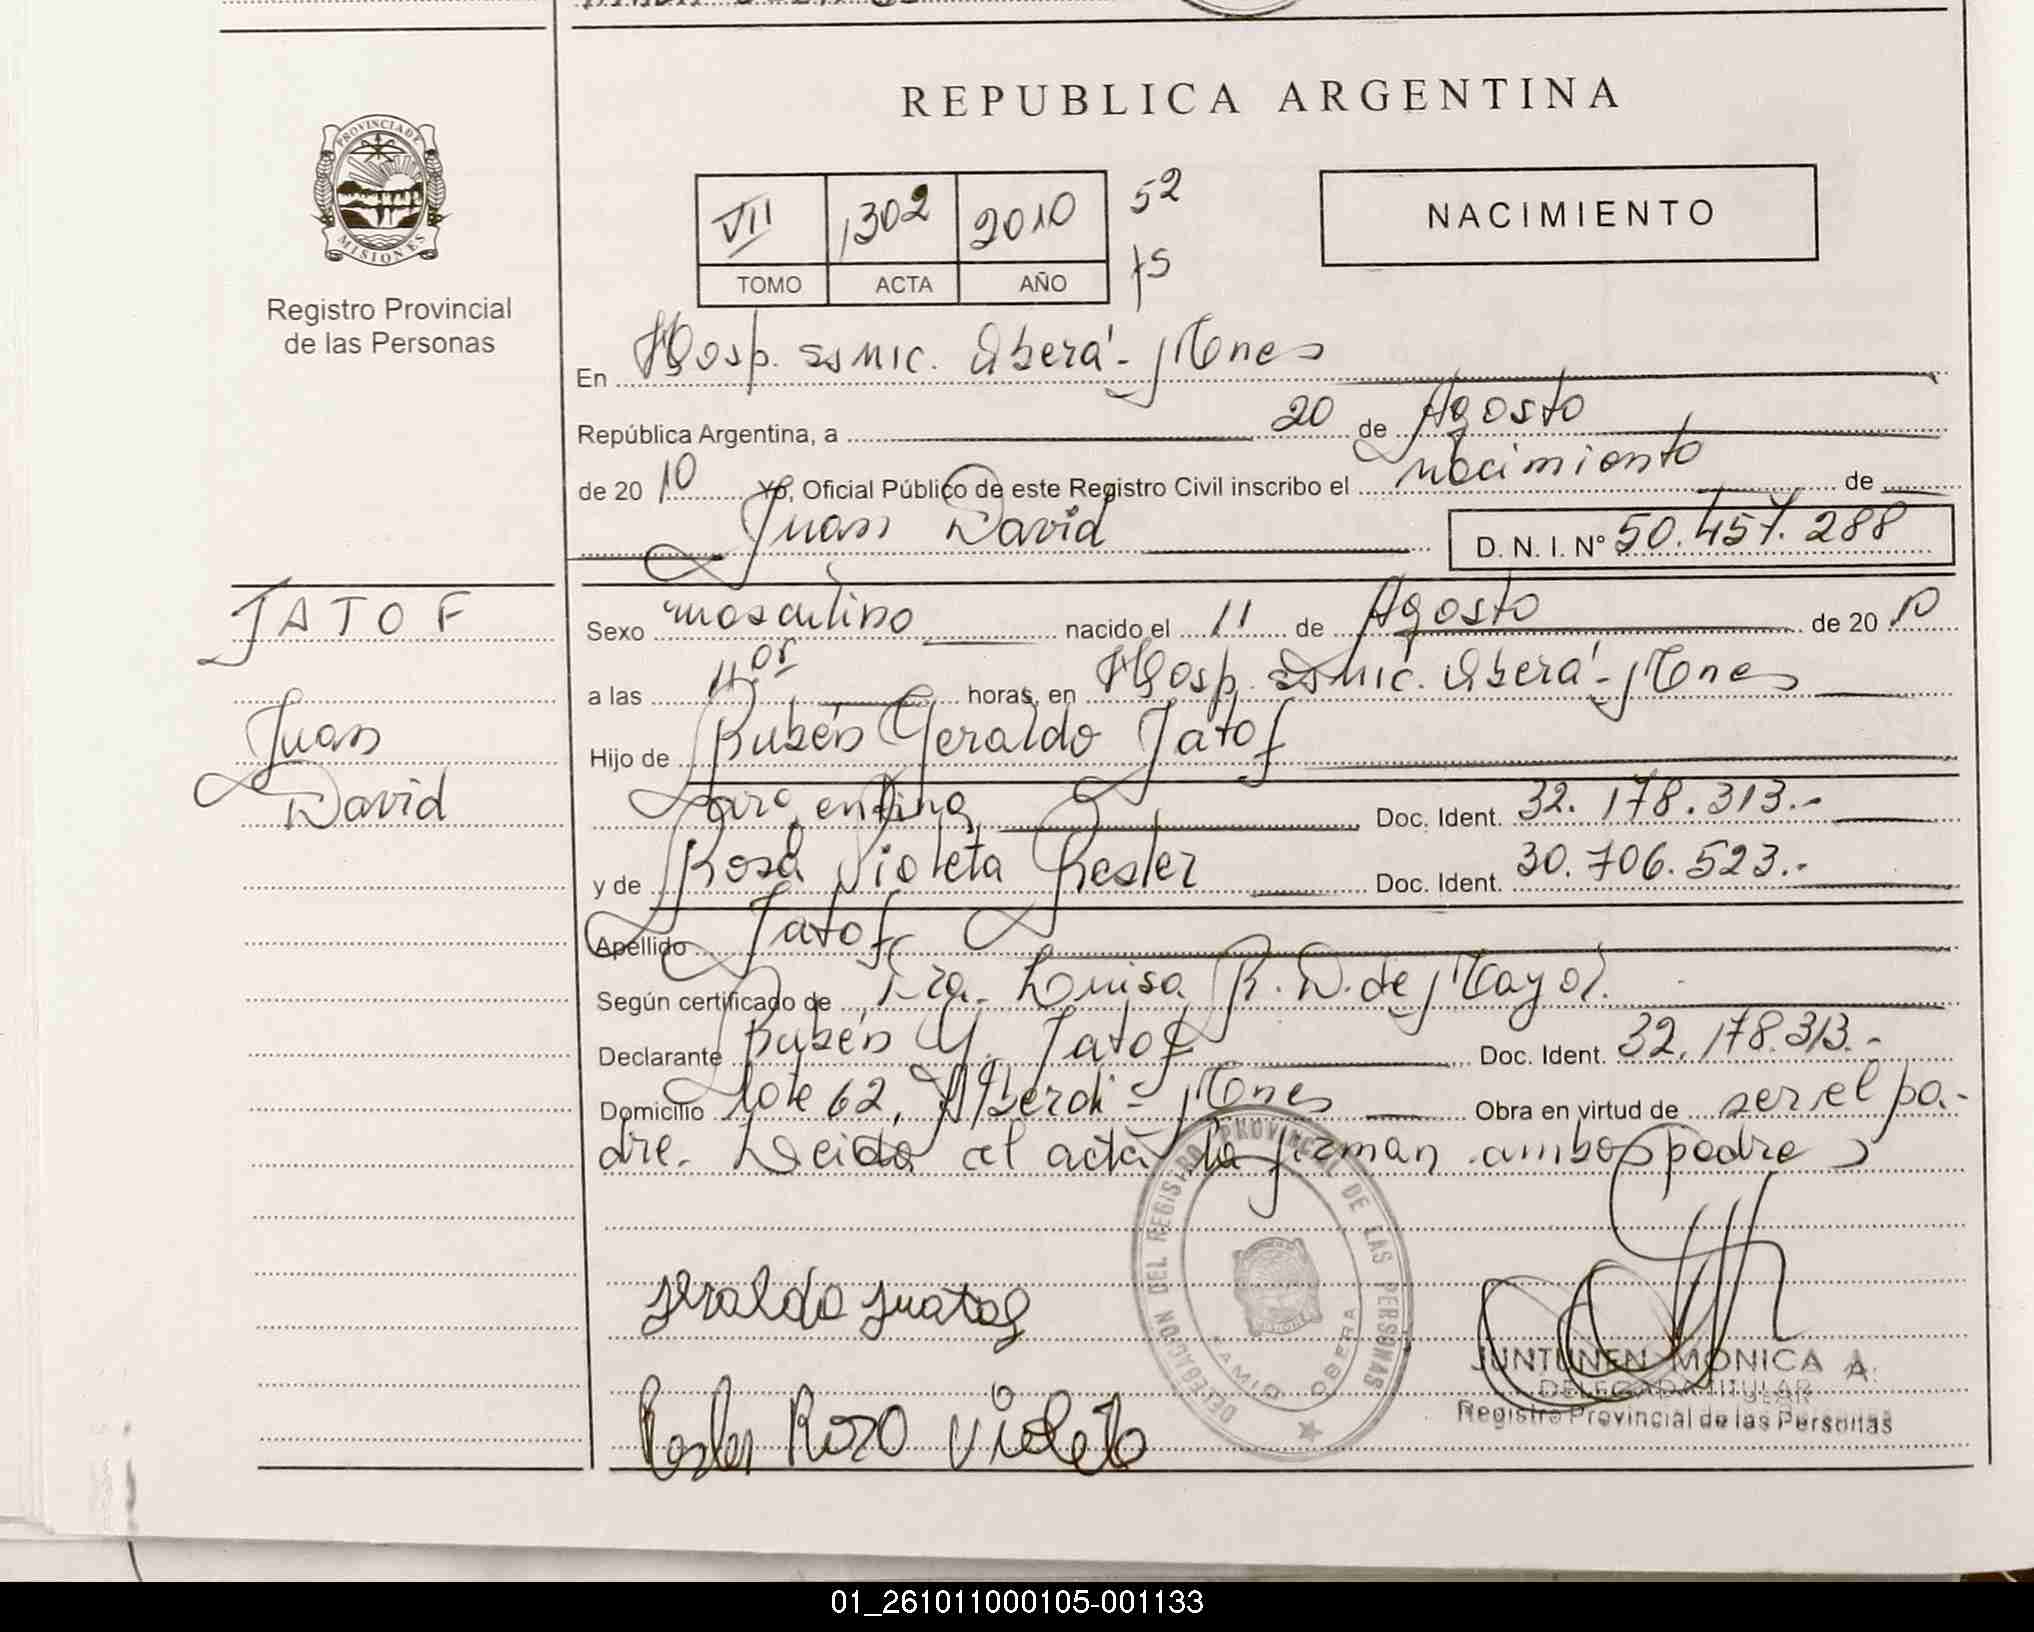 REPUBLICA ARGENTINA
PROVINCIA DE
MISIONES
Registro Provincial
de las Personas
VII 1302 2010 52
TOMO ACTA AÑO 75
NACIMIENTO
En Hosp. Oberá - Mnes
República Argentina, a 20 de Agosto
de 20 10 Yo, Oficial Público de este Registro Civil inscribo el nacimiento de
Juan David D. N. I. Nº 50.457.288
JATOF
Juan
David
Sexo masculino nacido el 11 de Agosto de 20 10
a las 11.05 horas, en Hosp. Oberá - Mnes
Hijo de Rubén Geraldo Jatof
argentina Doc. Ident. 32.178.313.-
y de Rosa Violeta Doc. Ident. 30.706.523.-
Apellido Jatof
Según certificado de Dra. Luisa R. D. de Mayol.
Declarante Rubén G. Jatof Doc. Ident. 32.178.313.-
Domicilio lote 62, Alberdi - Mnes Obra en virtud de ser el pa-
dre. Leida el acta la firman ambos padres
DELEGACION DEL REGISTRO PROVINCIAL DE LAS PERSONAS
OBERA
Rosa Violeta
JUNTUNEN MONICA A.
DELEGADA TITULAR
Registro Provincial de las Personas
01_261011000105-001133